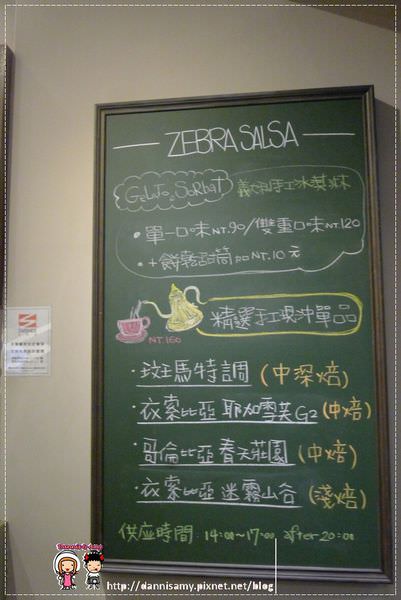 ZEBRA SALSA
GeLaTo & SorbaT 義大利手工冰淇淋
• 單一口味NT.90/雙重口味NT.120
• +餅乾甜筒 加NT.10元
精選手工現沖單品
NT.160
• 斑馬特調 (中深焙)
• 衣索比亞 耶加雪芙G2 (中焙)
• 哥倫比亞 春天莊園 (中焙)
• 衣索比亞 迷霧山谷 (淺焙)
供应時間: 14:00~17:00 after 20:00
http://dannisamy.pixnet.net/blog